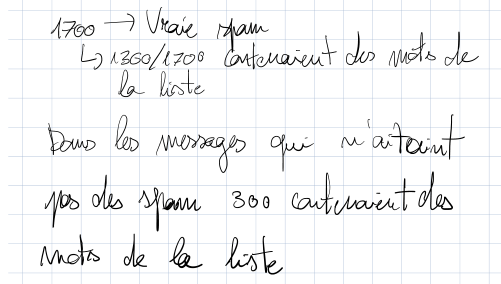 1700 → Vraie spam
↳ 1300/1700 contenaient des mots de
la liste
Dans les messages qui n'aitaint
pas des spam 300 contenaient des
mots de la liste